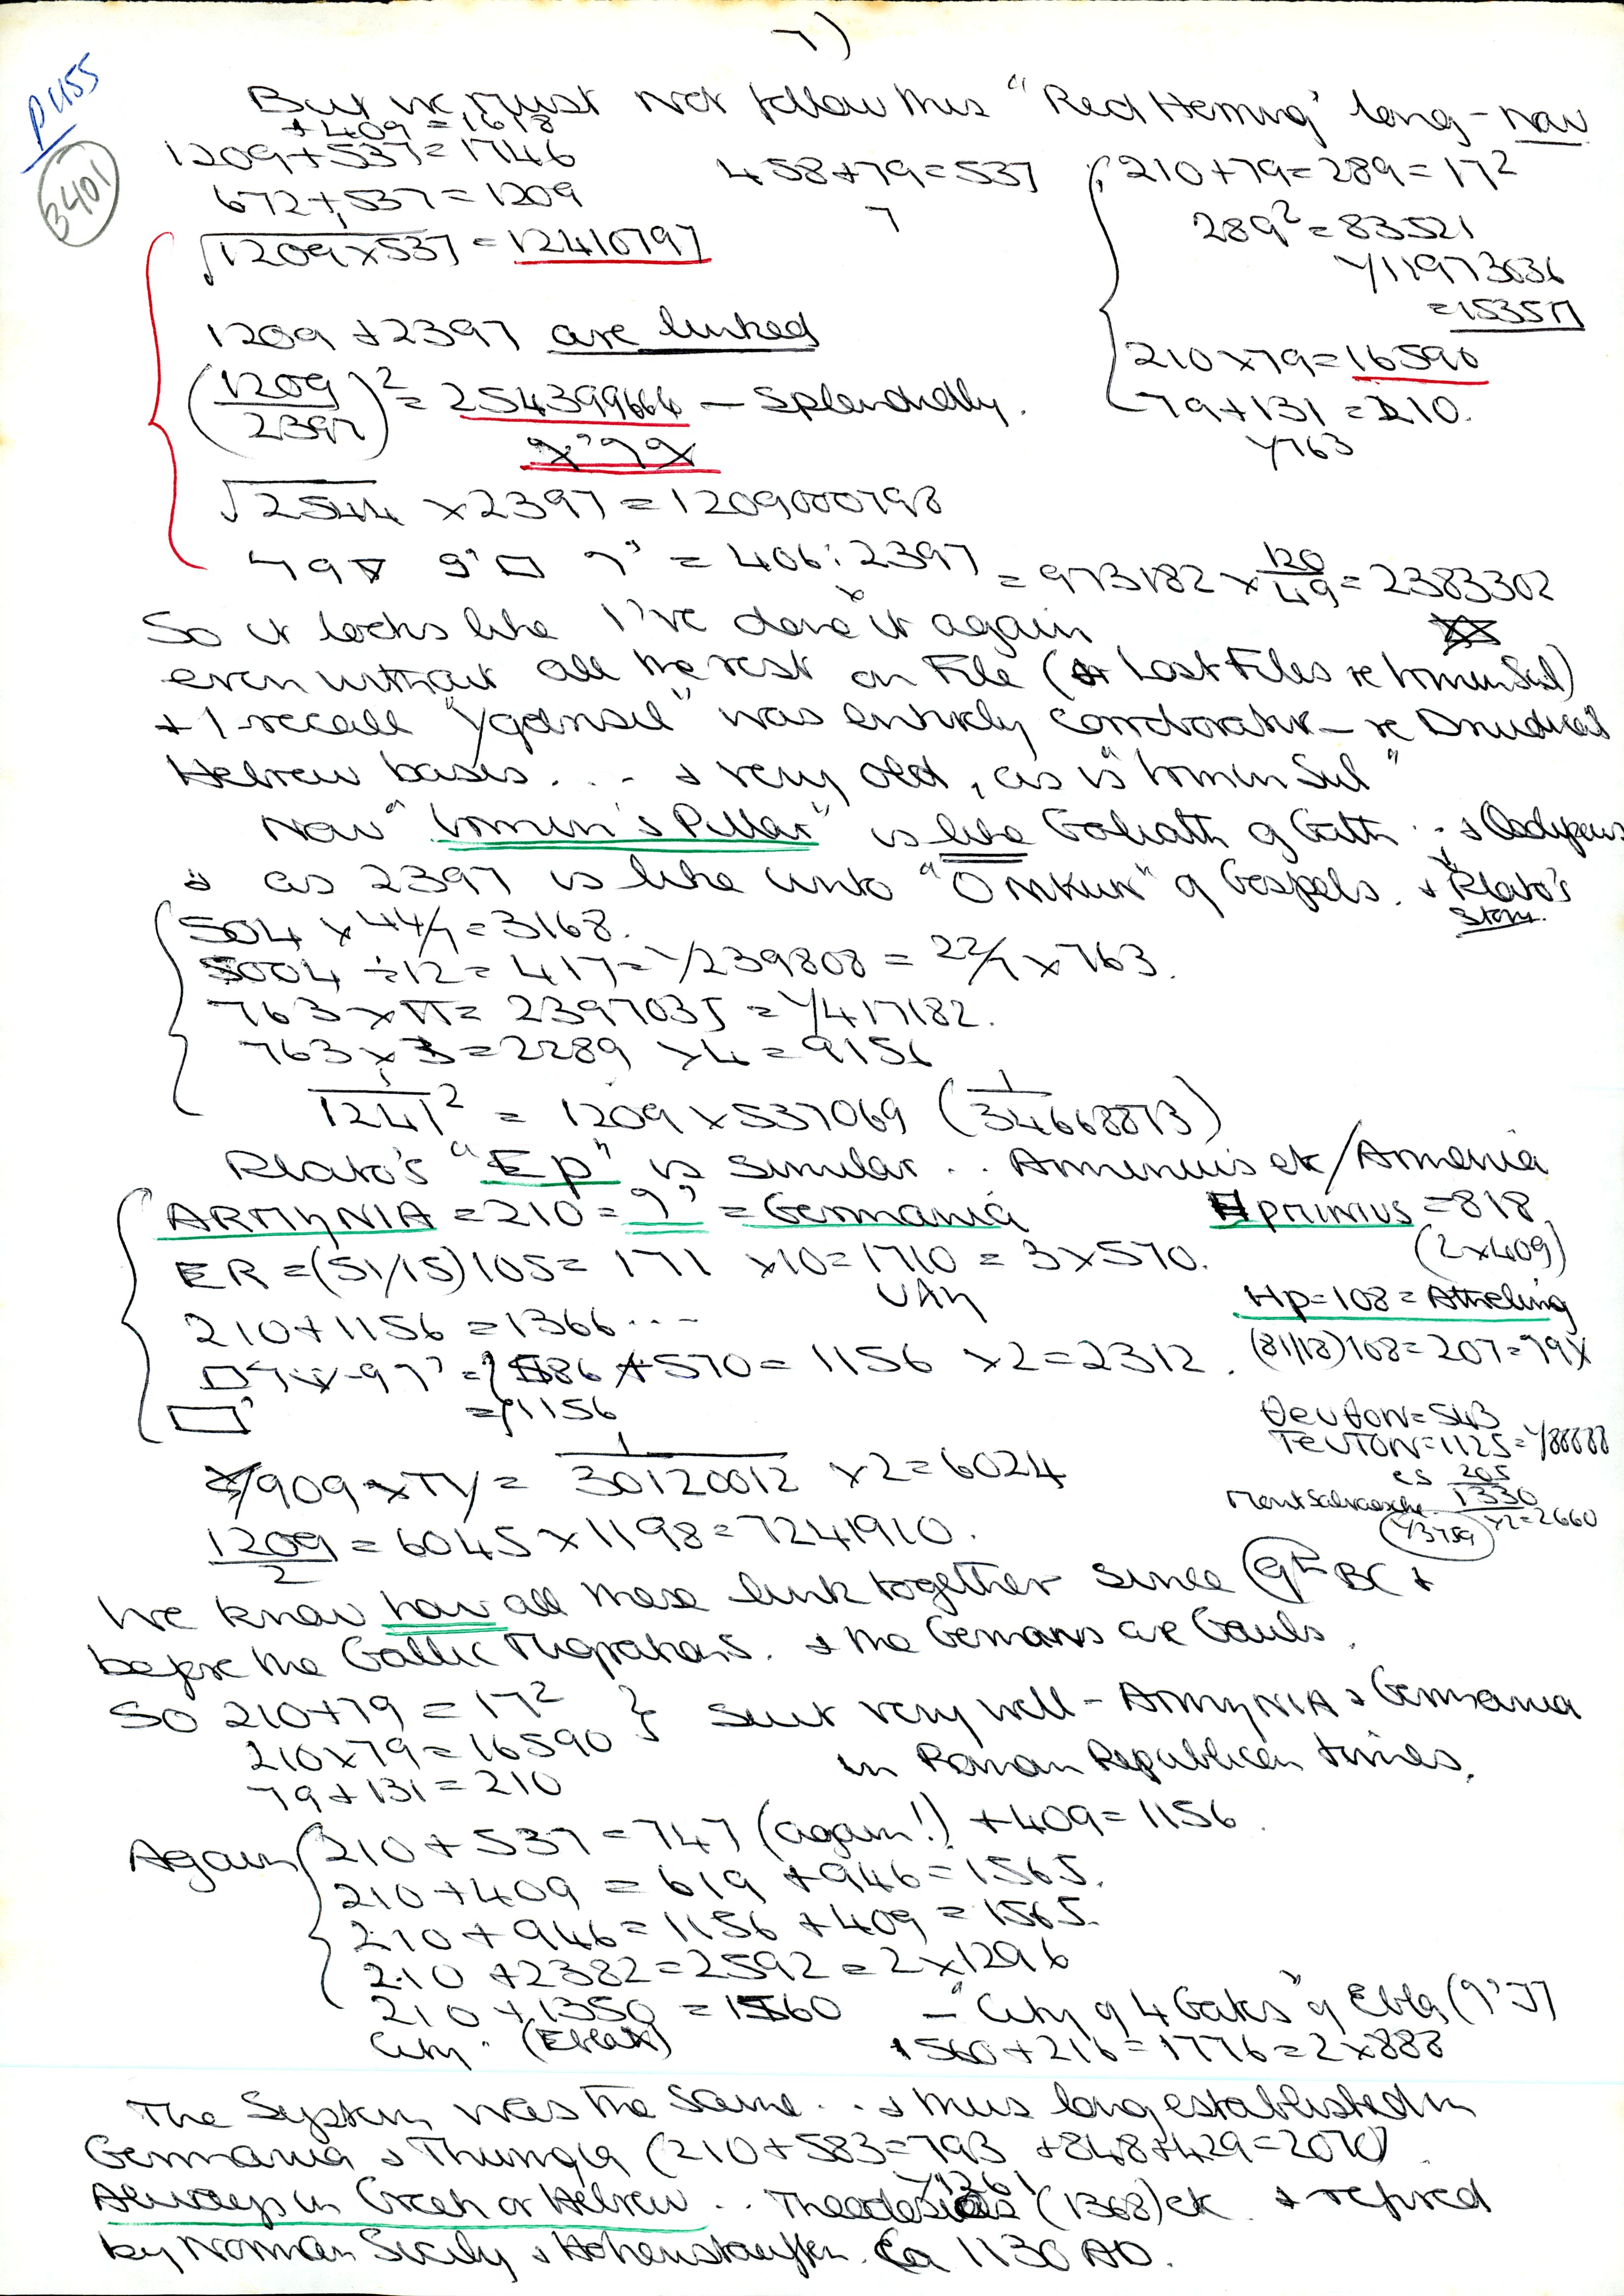 7)
P455
3401
But we must not follow this "Red Herring" long - now
+409 = 1618
1209 + 537 = 1746
672 + 537 = 1209
√1209 × 537 = 12410797
458 + 79 = 537
7
210 + 79 = 289 = 17²
289² = 83521
1/11973036
= 153577
210 × 79 = 16590
79 + 131 = 210.
1/763
1209 + 2397 are linked
(1209/2397)² = 254399664 — splendidly.
√2544 × 2397 = 1209000798
= 406 : 2397 = 973182 × 120/49 = 2383302
So it looks like I've done it again
even without all the rest on File (or Lost Files re Irmin Sul)
+ I recall "Ygdrasil" was entirely corroborative - re Druidical
Hebrew bases ... + very old, as is "Irmin Sul"
Now "Irmin's Pillar" is like Goliath of Gath .. + Oedipus
+ as 2397 is like unto "" of Gospels. + Plato's
story.
504 × 44/7 = 3168.
5004 ÷ 12 = 417 = 1/239808 = 22/7 × 763.
763 × π = 2397035 = 1/417182.
763 × 3 = 2289 × 4 = 9156
1/1241² = 1209 × 537069 (1/34668873)
Plato's "Ep" is similar .. Arminius etc/Armenia
ARMηNIA = 210 = = Germania
Hρminius = 818
(2 × 409)
ER = (51/15) 105 = 171 × 10 = 1710 = 3 × 570.
Hp = 108 = Atheling
210 + 1156 = 1366 ...
(81/18) 108 = 207 =
586 + 570 = 1156 × 2 = 2312.
= 1156
θeUθON = 543
TeUTON = 1125 = 1/88888
cs 205
Mont Salvaesche 1330
1/3759 × 2 = 2660
1/909 × = 1/30120012 × 2 = 6024
1209/2 = 6045 × 1198 = 7241910.
We know how all these link together since 9th BC +
before the Gallic Migrations. + the Germans are Gauls.
So 210 + 79 = 17² } suit very well - ARMηNIA + Germania
210 × 79 = 16590
in Roman Republican times.
79 + 131 = 210
Again 210 + 537 = 747 (again!) + 409 = 1156.
210 + 409 = 619 + 946 = 1565.
210 + 946 = 1156 + 409 = 1565.
210 + 2382 = 2592 = 2 × 1296
210 + 1350 = 1560 - "City of 4 Gates" of Ebla
City. (Ebla)
1560 + 216 = 1776 = 2 × 888
The System was the same .. + thus long established in
Germania + Thuringia (210 + 583 = 793 + 848 + 429 = 2070)
1/1261
Always in Greek or Hebrew .. Theodosius (1368) etc. + refired
by Norman Sicily + Hohenstauffen. Ca 1130 AD.